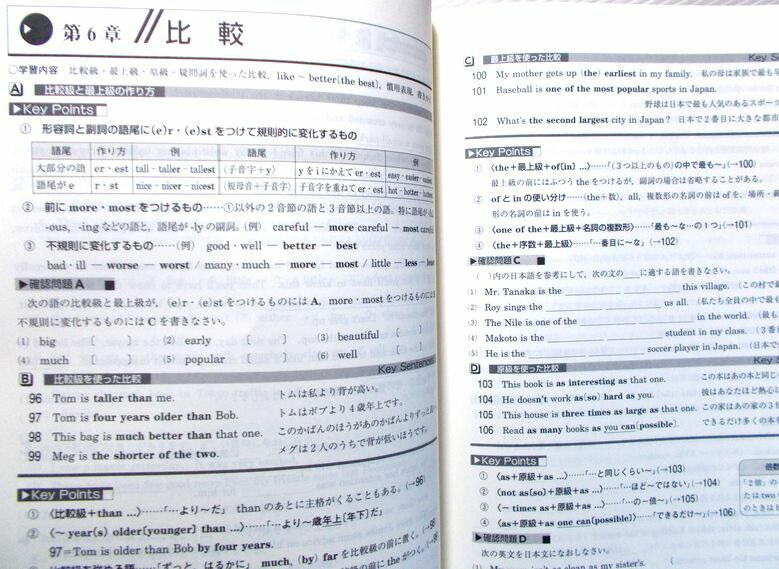 第6章 比較
○学習内容 比較級・最上級・原級・疑問詞を使った比較, like ~ better(the best), 慣用表現,
A 比較級と最上級の作り方
▶Key Points
① 形容詞と副詞の語尾に(e)r・(e)stをつけて規則的に変化するもの
語尾 作り方 例 語尾 作り方 例
大部分の語 er・est tall - taller - tallest 〈子音字+y〉 yをiにかえてer・est easy - easier -
語尾がe r・st nice - nicer - nicest 〈短母音+子音字〉 子音字を重ねてer・est hot - hotter -
② 前にmore・mostをつけるもの……①以外の2音節の語と3音節以上の語。特に語尾が
-ous, -ingなどの語と, 語尾が-lyの副詞。(例) careful — more careful — most careful
③ 不規則に変化するもの……(例) good・well — better — best
bad・ill — worse — worst / many・much — more — most / little — less — least
▶確認問題A
次の語の比較級と最上級が, (e)r・(e)stをつけるものにはA, more・mostをつけるものには
不規則に変化するものにはCを書きなさい。
(1) big [ ] (2) early [ ] (3) beautiful [ ]
(4) much [ ] (5) popular [ ] (6) well [ ]
B 比較級を使った比較 Key Sentences
96 Tom is taller than me. トムは私より背が高い。
97 Tom is four years older than Bob. トムはボブより4歳年上です。
98 This bag is much better than that one. このかばんのほうがあのかばんよりずっと
99 Meg is the shorter of the two. メグは2人のうちで背が低いほうです。
▶Key Points
① 〈比較級+than …〉……「…より~だ」 thanのあとに主格がくることもある。(→96)
② 〈~ year(s) older[younger] than …〉……「…より~歳年上[年下]だ」
97=Tom is older than Bob by four years.
「ずっと, はるかに」 much, (by) farを比較級の前に置く。
C 最上級を使った比較 Key
100 My mother gets up (the) earliest in my family. 私の母は家族で最も
101 Baseball is one of the most popular sports in Japan.
野球は日本で最も人気のあるスポー
102 What's the second largest city in Japan? 日本で2番目に大きな都市
▶Key Points
① 〈the+最上級+of[in] …〉……「(3つ以上のもの)の中で最も~」(→100)
最上級の前にはふつうtheをつけるが, 副詞の場合は省略することがある。
② ofとinの使い分け……〈the+数〉, all, 複数形の名詞の前はofを, 場所・
形の名詞の前はinを使う。
③ 〈one of the+最上級+名詞の複数形〉……「最も~な…の1つ」(→101)
④ 〈the+序数+最上級〉……「…番目に~な」(→102)
▶確認問題C
( )内の日本語を参考にして, 次の文の___に適する語を書きなさい。
(1) Mr. Tanaka is the ___ ___ ___ this village. (この村で最
(2) Roy sings the ___ ___ us all. (私たち全員の中で最も
(3) The Nile is one of the ___ ___ in the world. (最も
(4) Makoto is the ___ ___ student in my class. (3番
(5) He is the ___ ___ soccer player in Japan. (日本で
D 原級を使った比較 Key
103 This book is as interesting as that one. この本はあの本と同じ
104 He doesn't work as(so) hard as you. 彼はあなたほど熱心に
105 This house is three times as large as that one. この家はあの家の3
106 Read as many books as you can[possible]. できるだけ多くの本を
▶Key Points
① 〈as+原級+as …〉……「…と同じくらい~」(→103)
② 〈not as(so)+原級+as …〉……「…ほど~ではない」(→104)
③ 〈~ times as+原級+as …〉……「…の一倍~」(→105)
④ 〈as+原級+as one can(possible)〉……「できるだけ~」(→106)
▶確認問題D
次の英文を日本文になおしなさい。
as clean as my sister's.